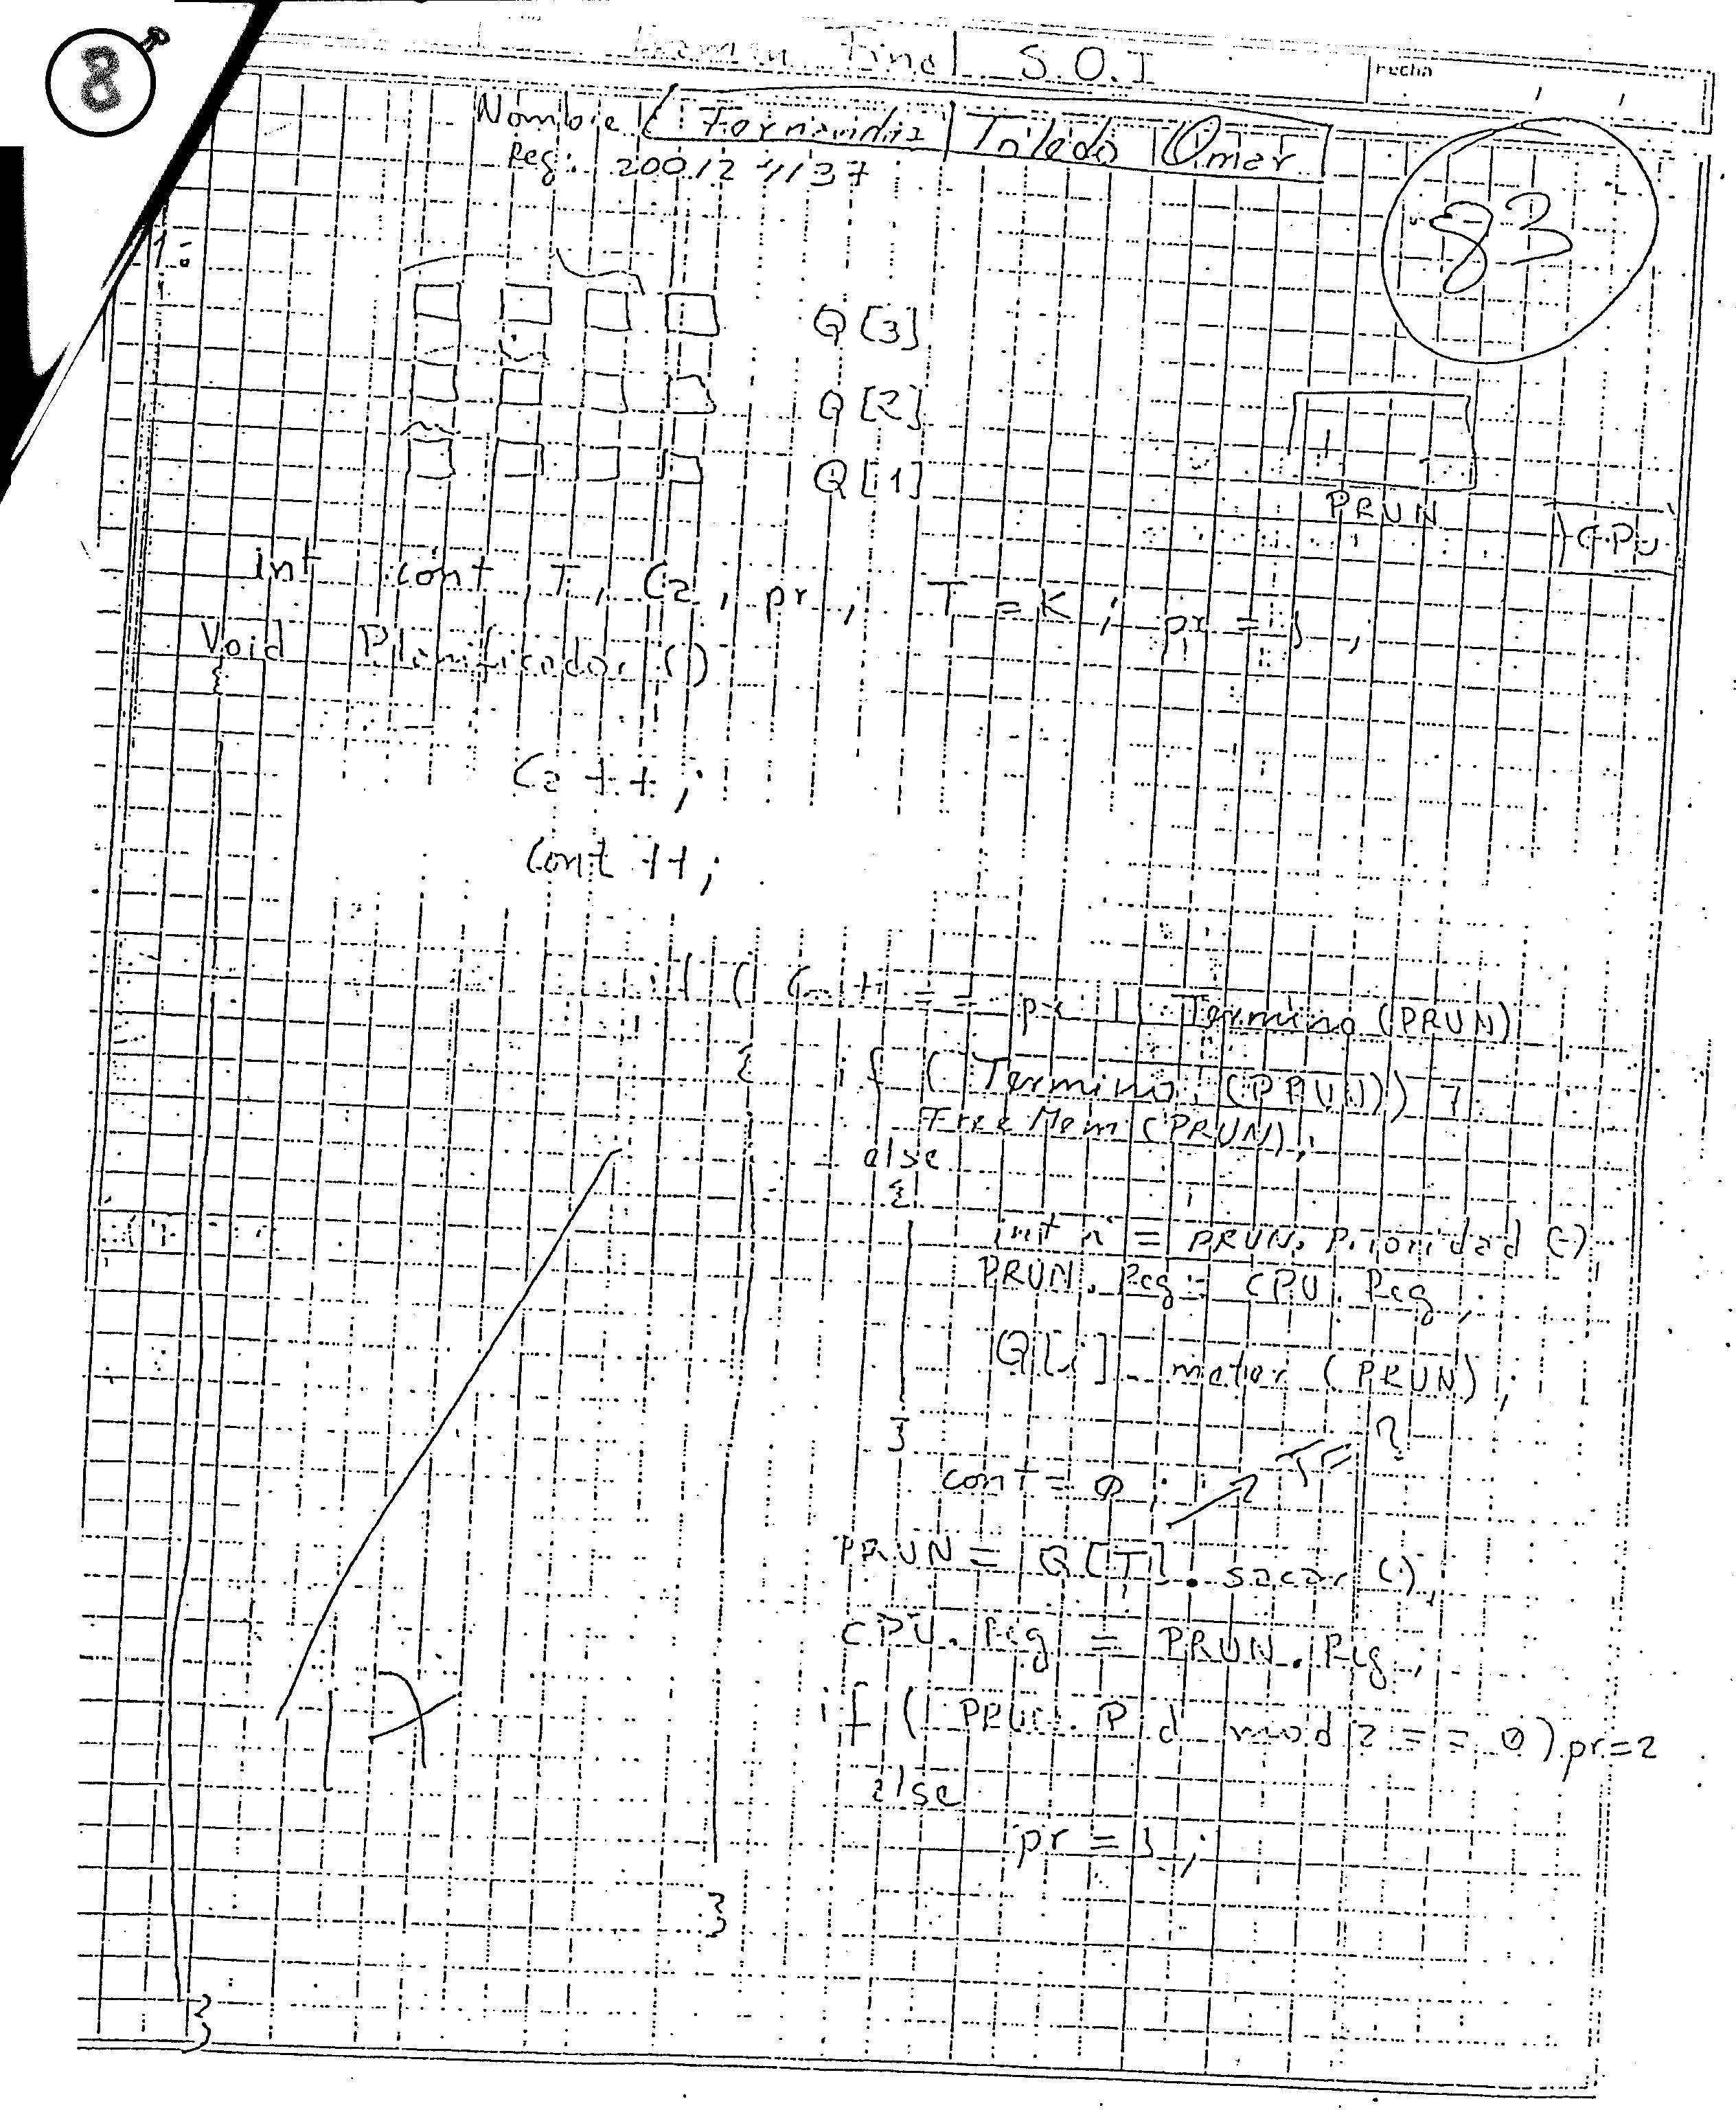 8
Examen Final S.O.I
Fecha
Nombre: Fernandez Toledo Omar
Reg: 200124137
83
1:
Q[3]
Q[2]
Q[1]
PRUN
CPU
int cont, T, C2, pr, T = K; pr = 1;
Void Planificador()
{
C2++;
Cont++;
if (Cont == pr || Termino(PRUN)
{ if (Termino(PRUN))
FreeMem(PRUN);
else
{
int = PRUN.Prioridad()
PRUN.Reg = CPU.Reg;
Q[ ] meter (PRUN);
}
cont = 0; T= ?
PRUN = Q[T].sacar();
CPU.Reg = PRUN.Reg;
if (PRUN.Pid mod 2 == 0) pr=2
else
pr = 1;
}
}